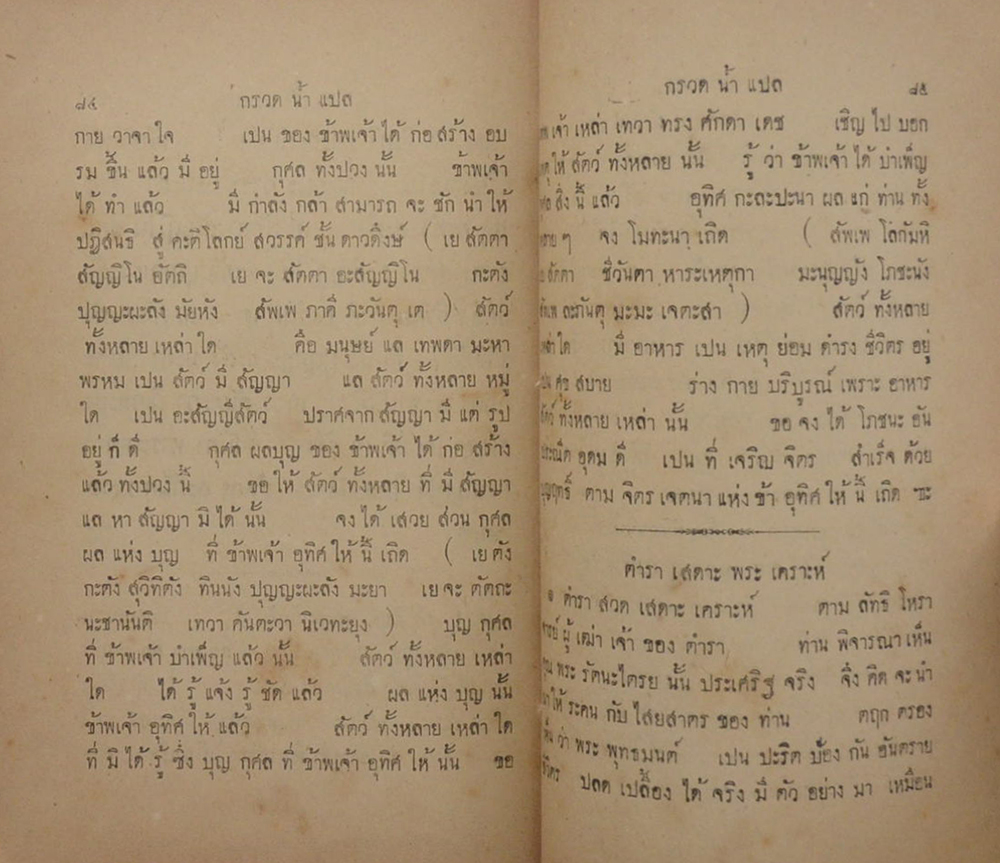 ๘๔ กรวด น้ำ แปล
กาย วาจา ใจ เปน ของ ข้าพเจ้า ได้ ก่อ สร้าง อบ
รม ขึ้น แล้ว มี อยู่ กุศล ทั้งปวง นั้น ข้าพเจ้า
ได้ ทำ แล้ว มี กำลัง กล้า สามารถ จะ ชัก นำ ให้
ปฏิสนธิ สู่ คะติ โลกย์ สวรรค์ ชั้น ดาวดึงษ์ ( เย สัตตา
สัญญิโน อัตถิ เย จะ สัตตา อะสัญญิโน กะตัง
ปุญญะผะลัง มัยหัง สัพเพ ภาคี ภะวันตุ เต ) สัตว์
ทั้งหลาย เหล่า ใด คือ มนุษย์ แล เทพดา มะหา
พรหม เปน สัตว์ มี สัญญา แล สัตว์ ทั้งหลาย หมู่
ใด เปน อะสัญญีสัตว์ ปราศจาก สัญญา มี แต่ รูป
อยู่ ก็ ดี กุศล ผลบุญ ของ ข้าพเจ้า ได้ ก่อ สร้าง
แล้ว ทั้งปวง นี้ ขอ ให้ สัตว์ ทั้งหลาย ที่ มี สัญญา
แล หา สัญญา มิ ได้ นั้น จง ได้ เสวย ส่วน กุศล
ผล แห่ง บุญ ที่ ข้าพเจ้า อุทิศ ให้ นี้ เถิด ( เย ตัง
กะตัง สุวิทิตัง ทินนัง ปุญญะผะลัง มะยา เย จะ ตัตถะ
นะชานันติ เทวา คันตะวา นิเวทะยุง ) บุญ กุศล
ที่ ข้าพเจ้า บำเพ็ญ แล้ว นั้น สัตว์ ทั้งหลาย เหล่า
ใด ได้ รู้ แจ้ง รู้ ชัด แล้ว ผล แห่ง บุญ นั้น
ข้าพเจ้า อุทิศ ให้ แล้ว สัตว์ ทั้งหลาย เหล่า ใด
ที่ มิ ได้ รู้ ซึ่ง บุญ กุศล ที่ ข้าพเจ้า อุทิศ ให้ นั้น ขอ
กรวด น้ำ แปล ๘๕
เจ้า เหล่า เทวา ทรง ศักดา เดช เชิญ ไป บอก
ให้ สัตว์ ทั้งหลาย นั้น รู้ ว่า ข้าพเจ้า ได้ บำเพ็ญ
สิ่ง นี้ แล้ว อุทิศ กะละปะนา ผล แก่ ท่าน ทั้ง
ๆ จง โมทะนา เถิด ( สัพเพ โลกัมหิ
สัตตา ชีวันตา หาระเหตุกา มะนุญญัง โภชะนัง
ละภันตุ มะมะ เจตะสา ) สัตว์ ทั้งหลาย
ใด มี อาหาร เปน เหตุ ย่อม ดำรง ชีวิตร อยู่
ศุข สบาย ร่าง กาย บริบูรณ์ เพราะ อาหาร
ทั้งหลาย เหล่า นั้น ขอ จง ได้ โภชนะ อัน
อุดม ดี เปน ที่ เจริญ จิตร สำเร็จ ด้วย
ตาม จิตร เจตนา แห่ง ข้า อุทิศ ให้ นี้ เถิด ๚ะ
ตำรา เสดาะ พระ เคราะห์
๏ ตำรา สวด เสดาะ เคราะห์ ตาม ลัทธิ โหรา
ผู้ เฒ่า เจ้า ของ ตำรา ท่าน พิจารณา เห็น
พระ รัตนะไตรย นั้น ประเศริฐ จริง จึ่ง คิด จะ นำ
ให้ ระคน กับ ไสยสาตร ของ ท่าน ตฤก ตรอง
ว่า พระ พุทธมนต์ เปน ปะริต ป้อง กัน อันตราย
ปลด เปลื้อง ได้ จริง มี ตัว อย่าง มา เหมือน